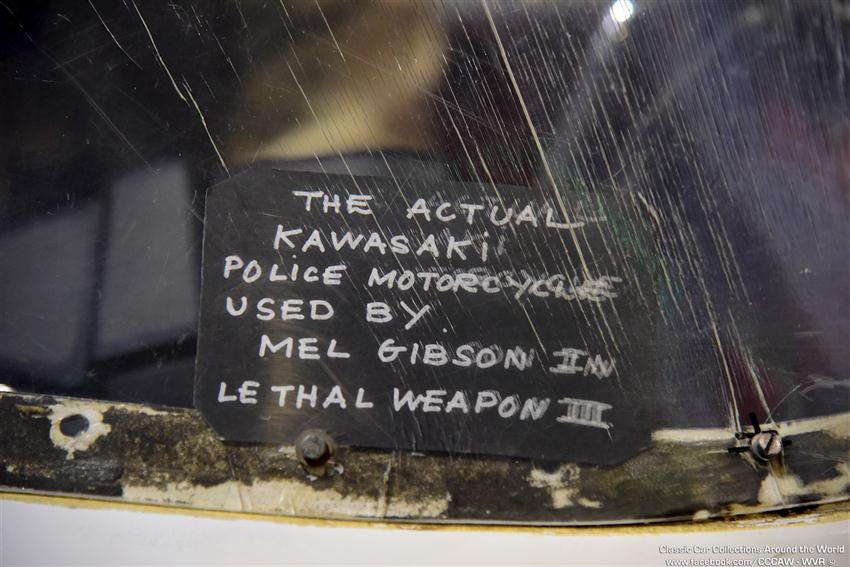 THE ACTUAL
KAWASAKi
POLiCE MOTORCYCLE
USED BY
MEL GIBSON IN
LETHAL WEAPON III
Classic Car Collections Around the World
www.facebook.com/CCCAW - WVR ©